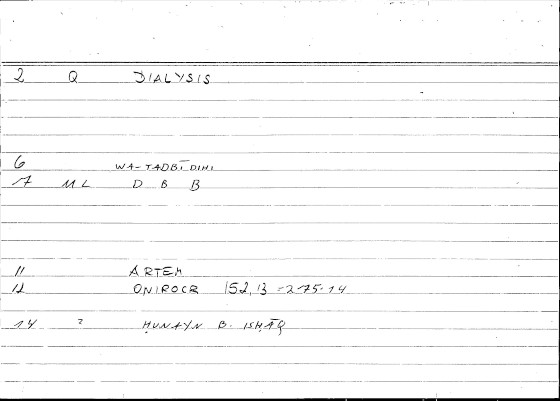 2 Q DIALYSIS
6 WA-TADBĪDIHI
7 ML D B B
11 ARTEM
12 ONIROCR 152,13 = 275.14
14 ? ḤUNAYN B. ISḤĀQ